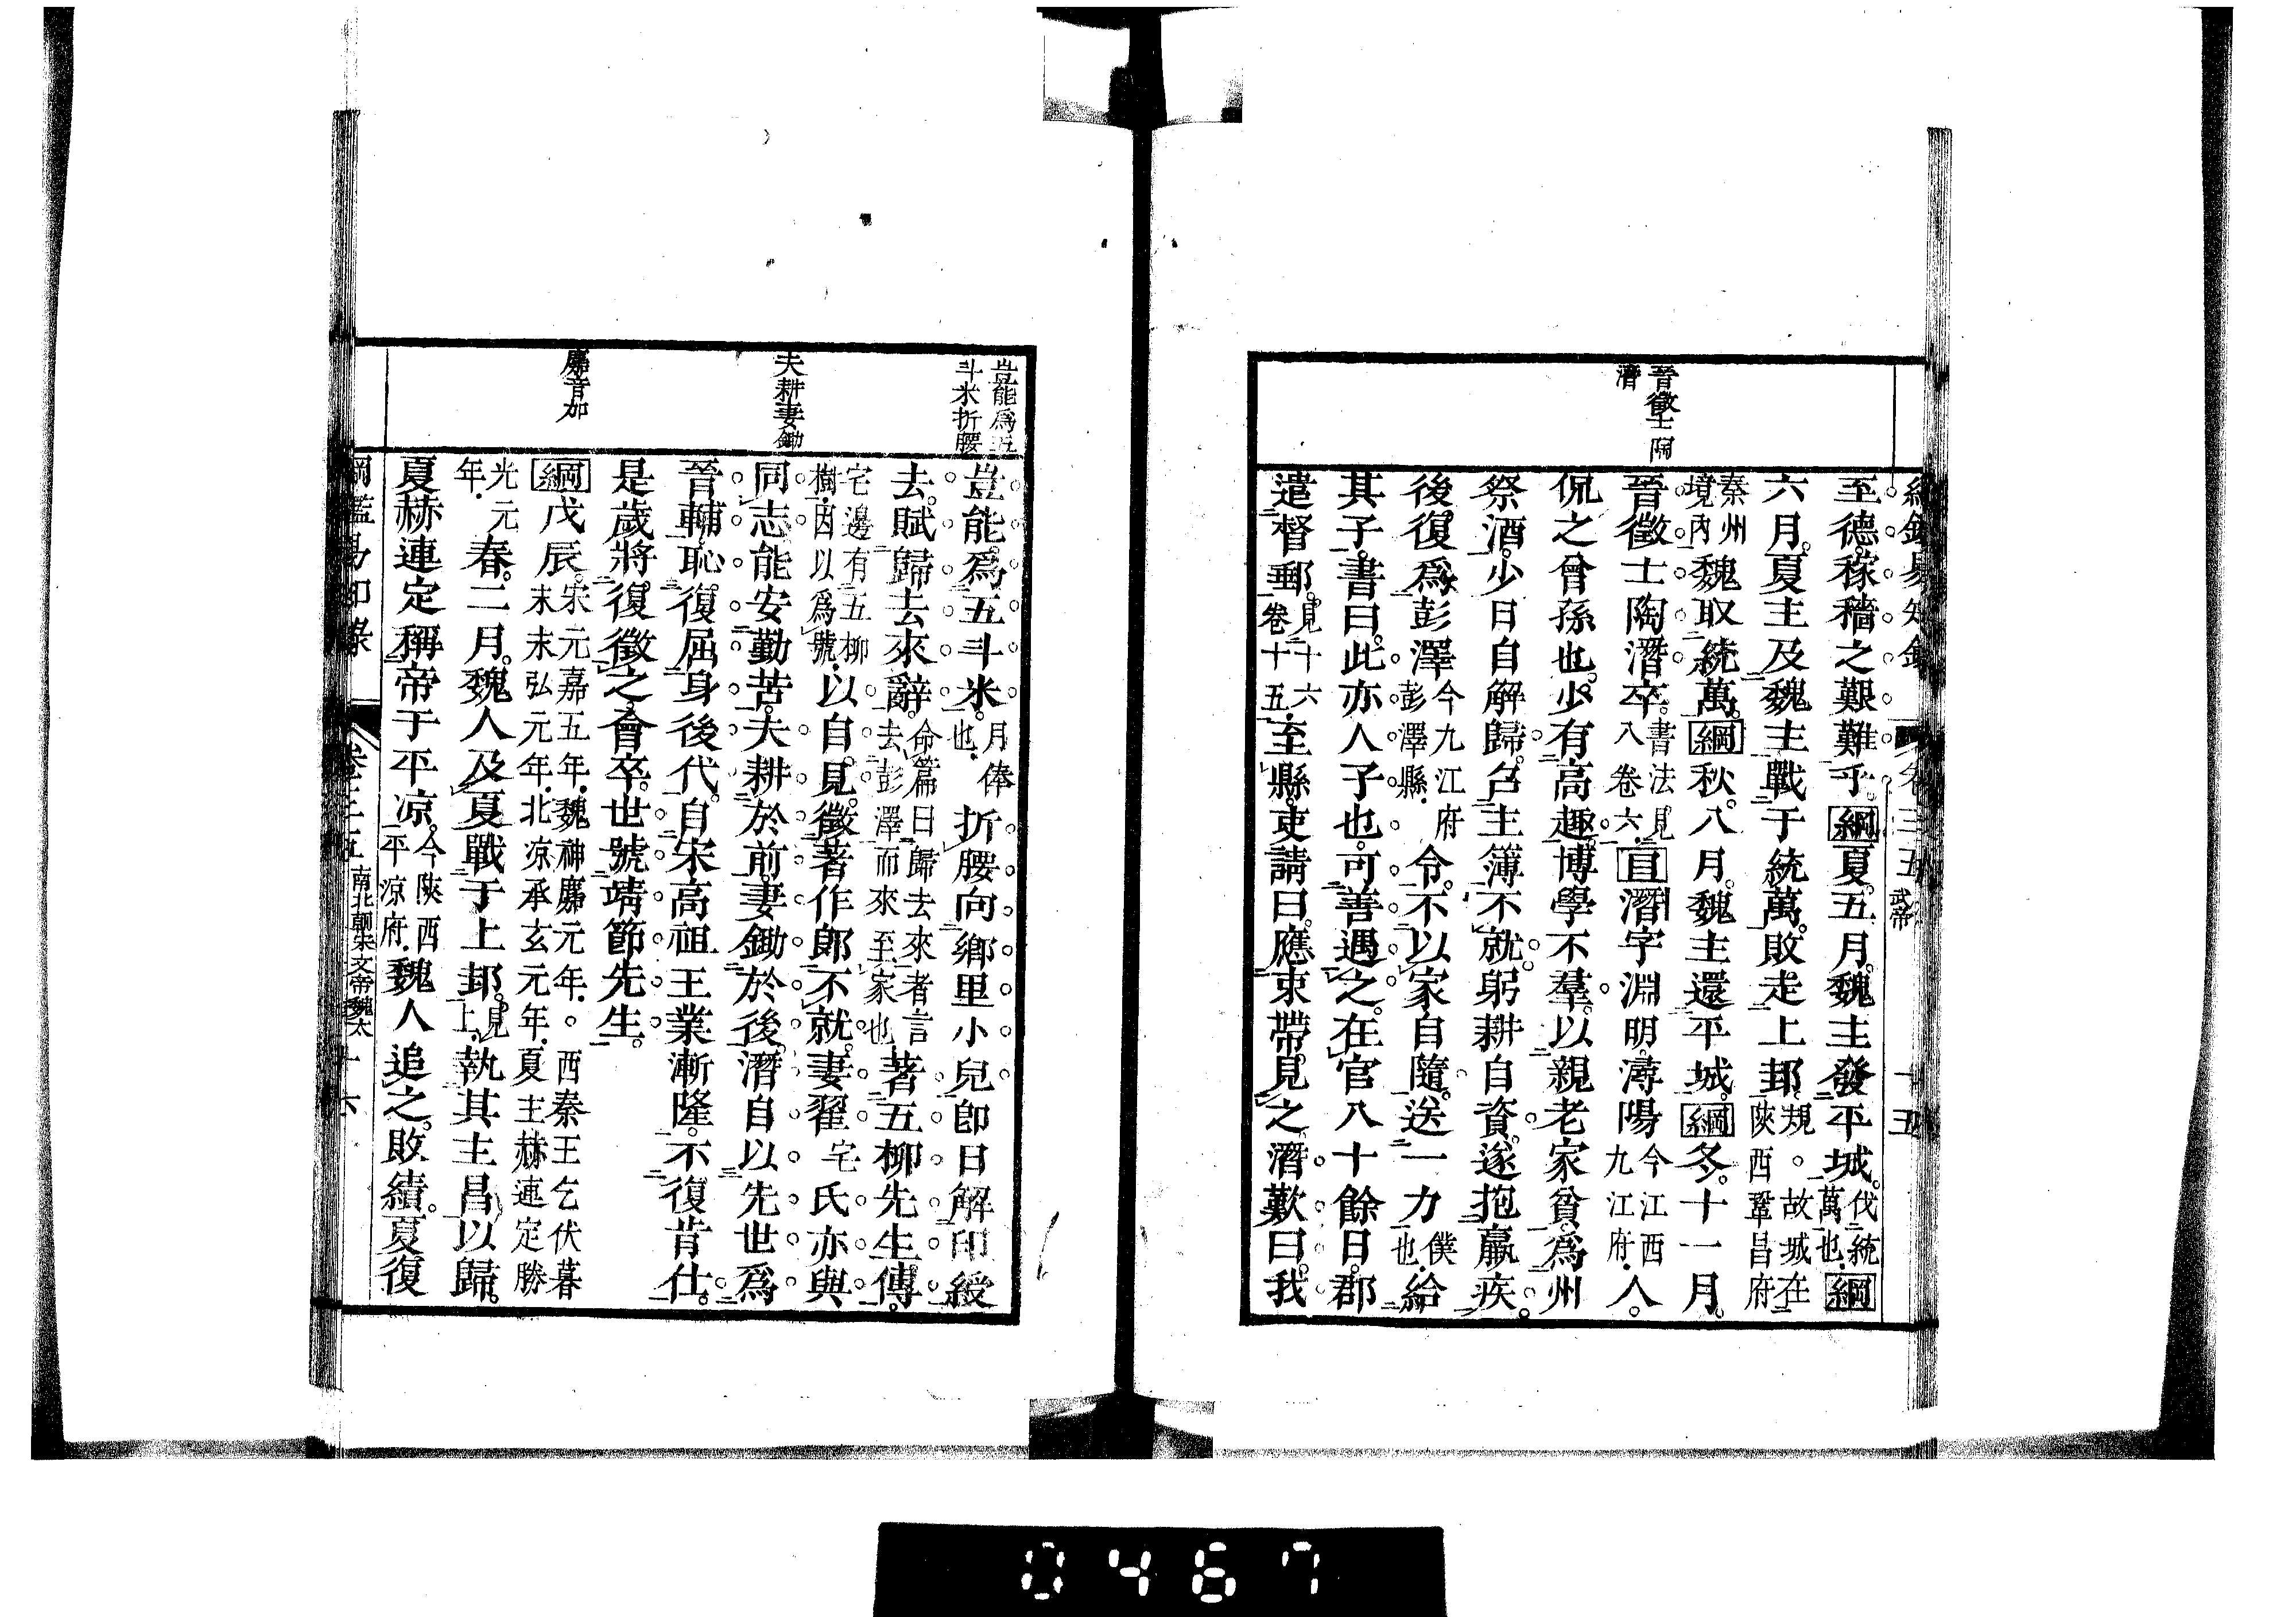 晉徵士陶
潛
至德稼穡之艱難乎綱夏五月魏主發平城伐統萬也綱
六月夏主及魏主戰于統萬敗走上邽規故城在陝西鞏昌府
秦州境內魏取統萬綱秋八月魏主還平城綱冬十一月
晉徵士陶潛卒書法見八卷六目潛字淵明潯陽今江西九江府人
侃之曾孫也少有高趣博學不羣以親老家貧爲州
祭酒少日自解歸召主簿不就躬耕自資遂抱羸疾
後復爲彭澤今九江府彭澤縣令不以家自隨送一力僕也給
其子書曰此亦人子也可善遇之在官八十餘日郡
遣督郵見十六卷十五至縣吏請曰應束帶見之潛歎曰我
豈能爲五
斗米折腰
夫耕妻鋤
麚音加
豈能爲五斗米月俸也折腰向鄉里小兒卽日解印綬
去賦歸去來辭命篇曰歸去來者言去彭澤而來至家也著五柳先生傳
宅邊有五柳樹因以爲號以自見徵著作郎不就妻翟宅氏亦與
同志能安勤苦夫耕於前妻鋤於後潛自以先世爲
晉輔恥復屈身後代自宋高祖王業漸隆不復肯仕
是歲將復徵之會卒世號靖節先生
綱戊辰宋元嘉五年魏神麚元年西秦王乞伏暮末末弘元年北凉承玄元年夏主赫連定勝
光元年春二月魏人及夏戰于上邽見上執其主昌以歸
夏赫連定稱帝于平凉今陝西平凉府魏人追之敗績夏復
南北朝宋文帝魏太
十六
0467